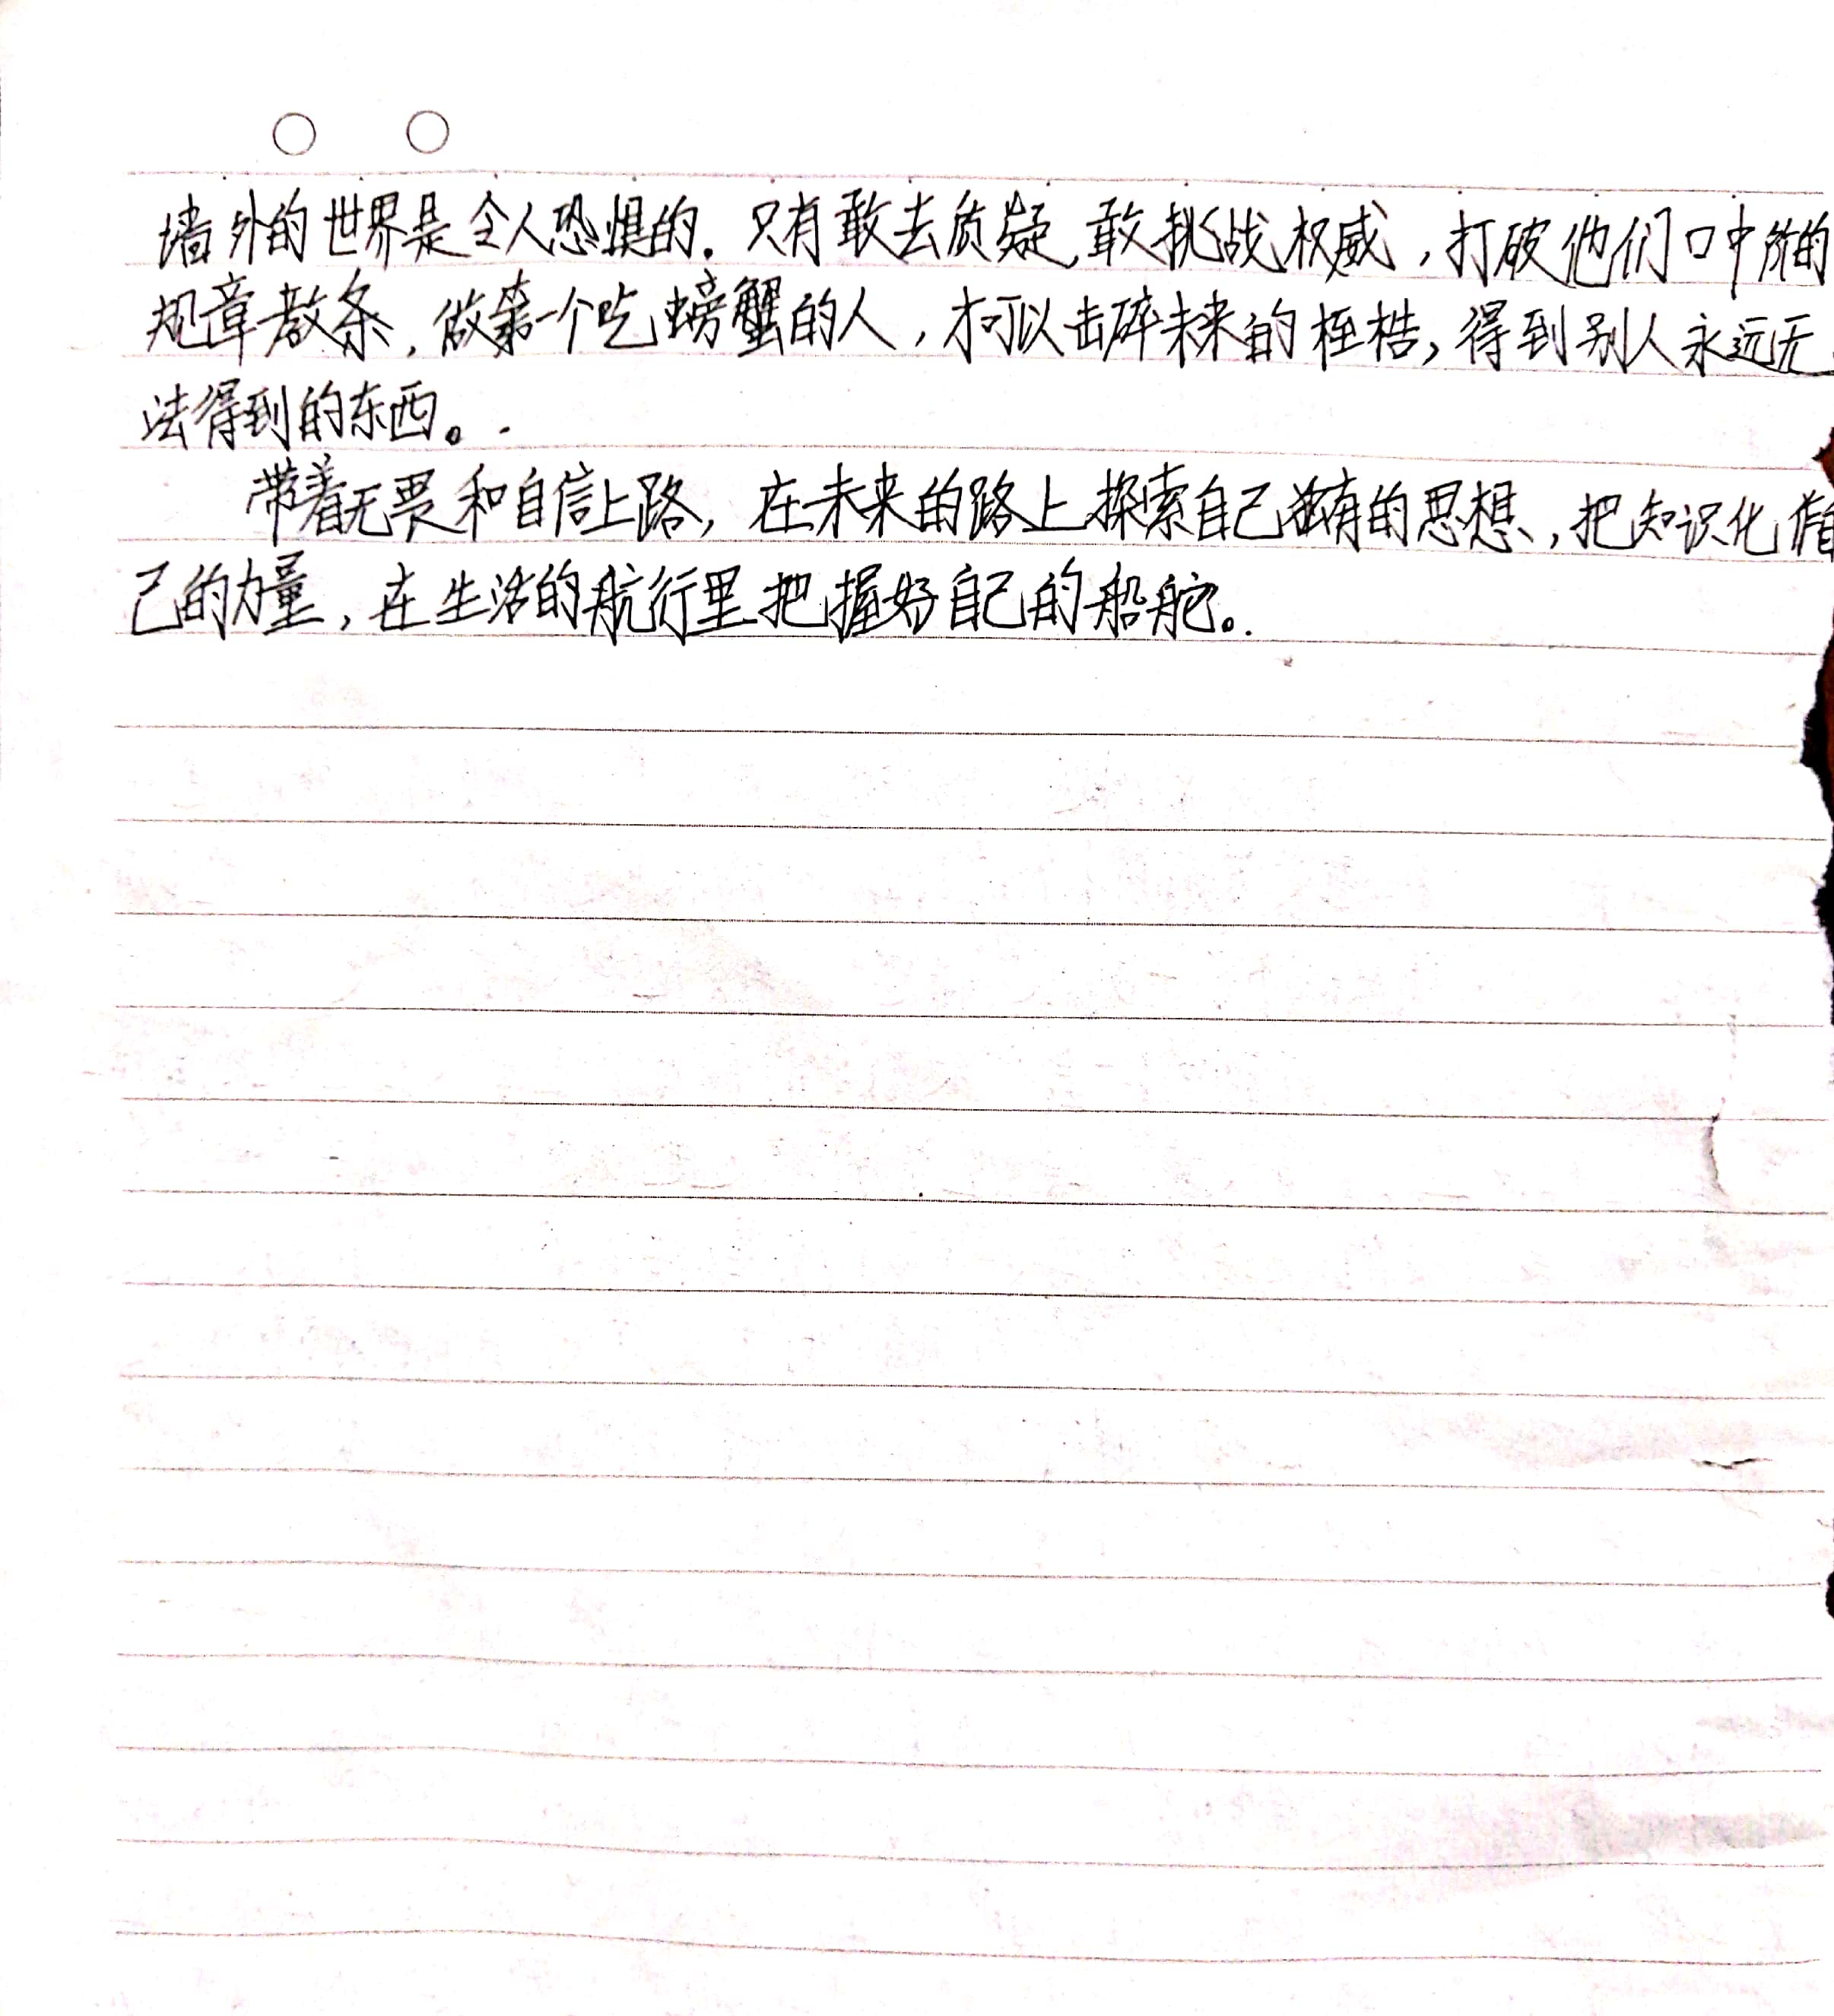 墙外的世界是令人恐惧的。只有敢去质疑,敢挑战权威,打破他们口中所的
规章教条,做第一个吃螃蟹的人,才可以击碎未来的桎梏,得到别人永远无
法得到的东西。
带着无畏和自信上路,在未来的路上探索自己独有的思想,把知识化作自
己的力量,在生活的航行里把握好自己的船舵。